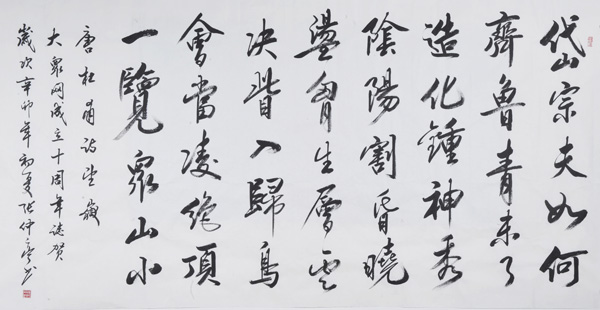 岱宗夫如何
齊魯青未了
造化鍾神秀
陰陽割昏曉
盪胷生層雲
决眥入歸鳥
會當凌絶頂
一覽衆山小
唐杜甫詩望嶽
大衆网成立十周年誌贺
歲次辛卯年初夏張仲亭书